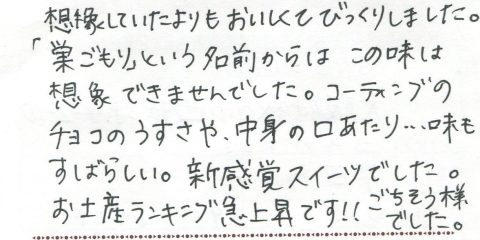 想像していたよりもおいしくてびっくりしました。
「巣ごもり」という名前からは この味は
想象できませんでした。コーティングの
チョコのうすさや、中身の口あたり…味も
すばらしい。新感覚スイーツでした。
お土産ランキング急上昇です!! ごちそう様
でした。